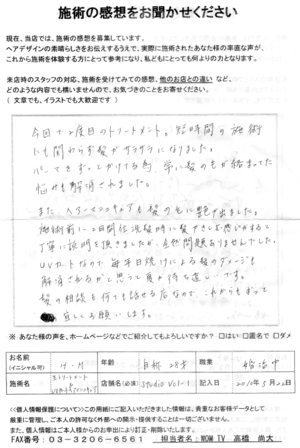 施術の感想をお聞かせください
現在、当店では、施術の感想を募集しています。
ヘアデザインの素晴らしさをお伝えするうえで、実際に施術されたあなた様の率直な声が、
これから施術を体験する方にとって参考になり、私どもにとっても何よりの力となります。
来店時のスタッフの対応、施術を受けてみての感想、他のお店との違い など、
どのような内容でも構いませんので、お気づきのことをお寄せください。
( 文章でも、イラストでも大歓迎です )
今回で2度目のトリートメント。短時間の施術
にも関わらず髪がサラサラになりました。
パーマをずっとかけてる為、常に髪の毛が絡まってた
悩みも解消されました。
また、ヘアーマニキュアも髪の毛に艶が出ました。
施術前に2日間位洗髪時に髪がきしむ感じがすると
丁寧に説明も頂きましたが、全然問題ありませんでした。
UVカットなので毎年日焼けによる髪のダメージも
解消されるかと思うと夏が待ち遠しいです。
髪の相談も何でも話せる店なので、これからもずっと
宜しくお願いします。
※ あなた様の声を、ホームページなどでご紹介してもよろしいですか? □はい □匿名で □ダメ
お名前
(イニシャル可)
H・M
年齢
28才
職業
施術名
トリートメント
店舗名(必須)
Studio Vol-1
記入日
2010年5月22日
<<個人情報保護について>>この用紙にご記入いただきました情報は、貴重なお客様データとして
厳重に管理し、ご本人の許可なく外部への開示・提供することは一切ございません。
また、個人情報はご本人様からのお申出により訂正・削除いたします。
FAX番号：03-3206-6561
担当者名：WOM TV 高橋 尚大